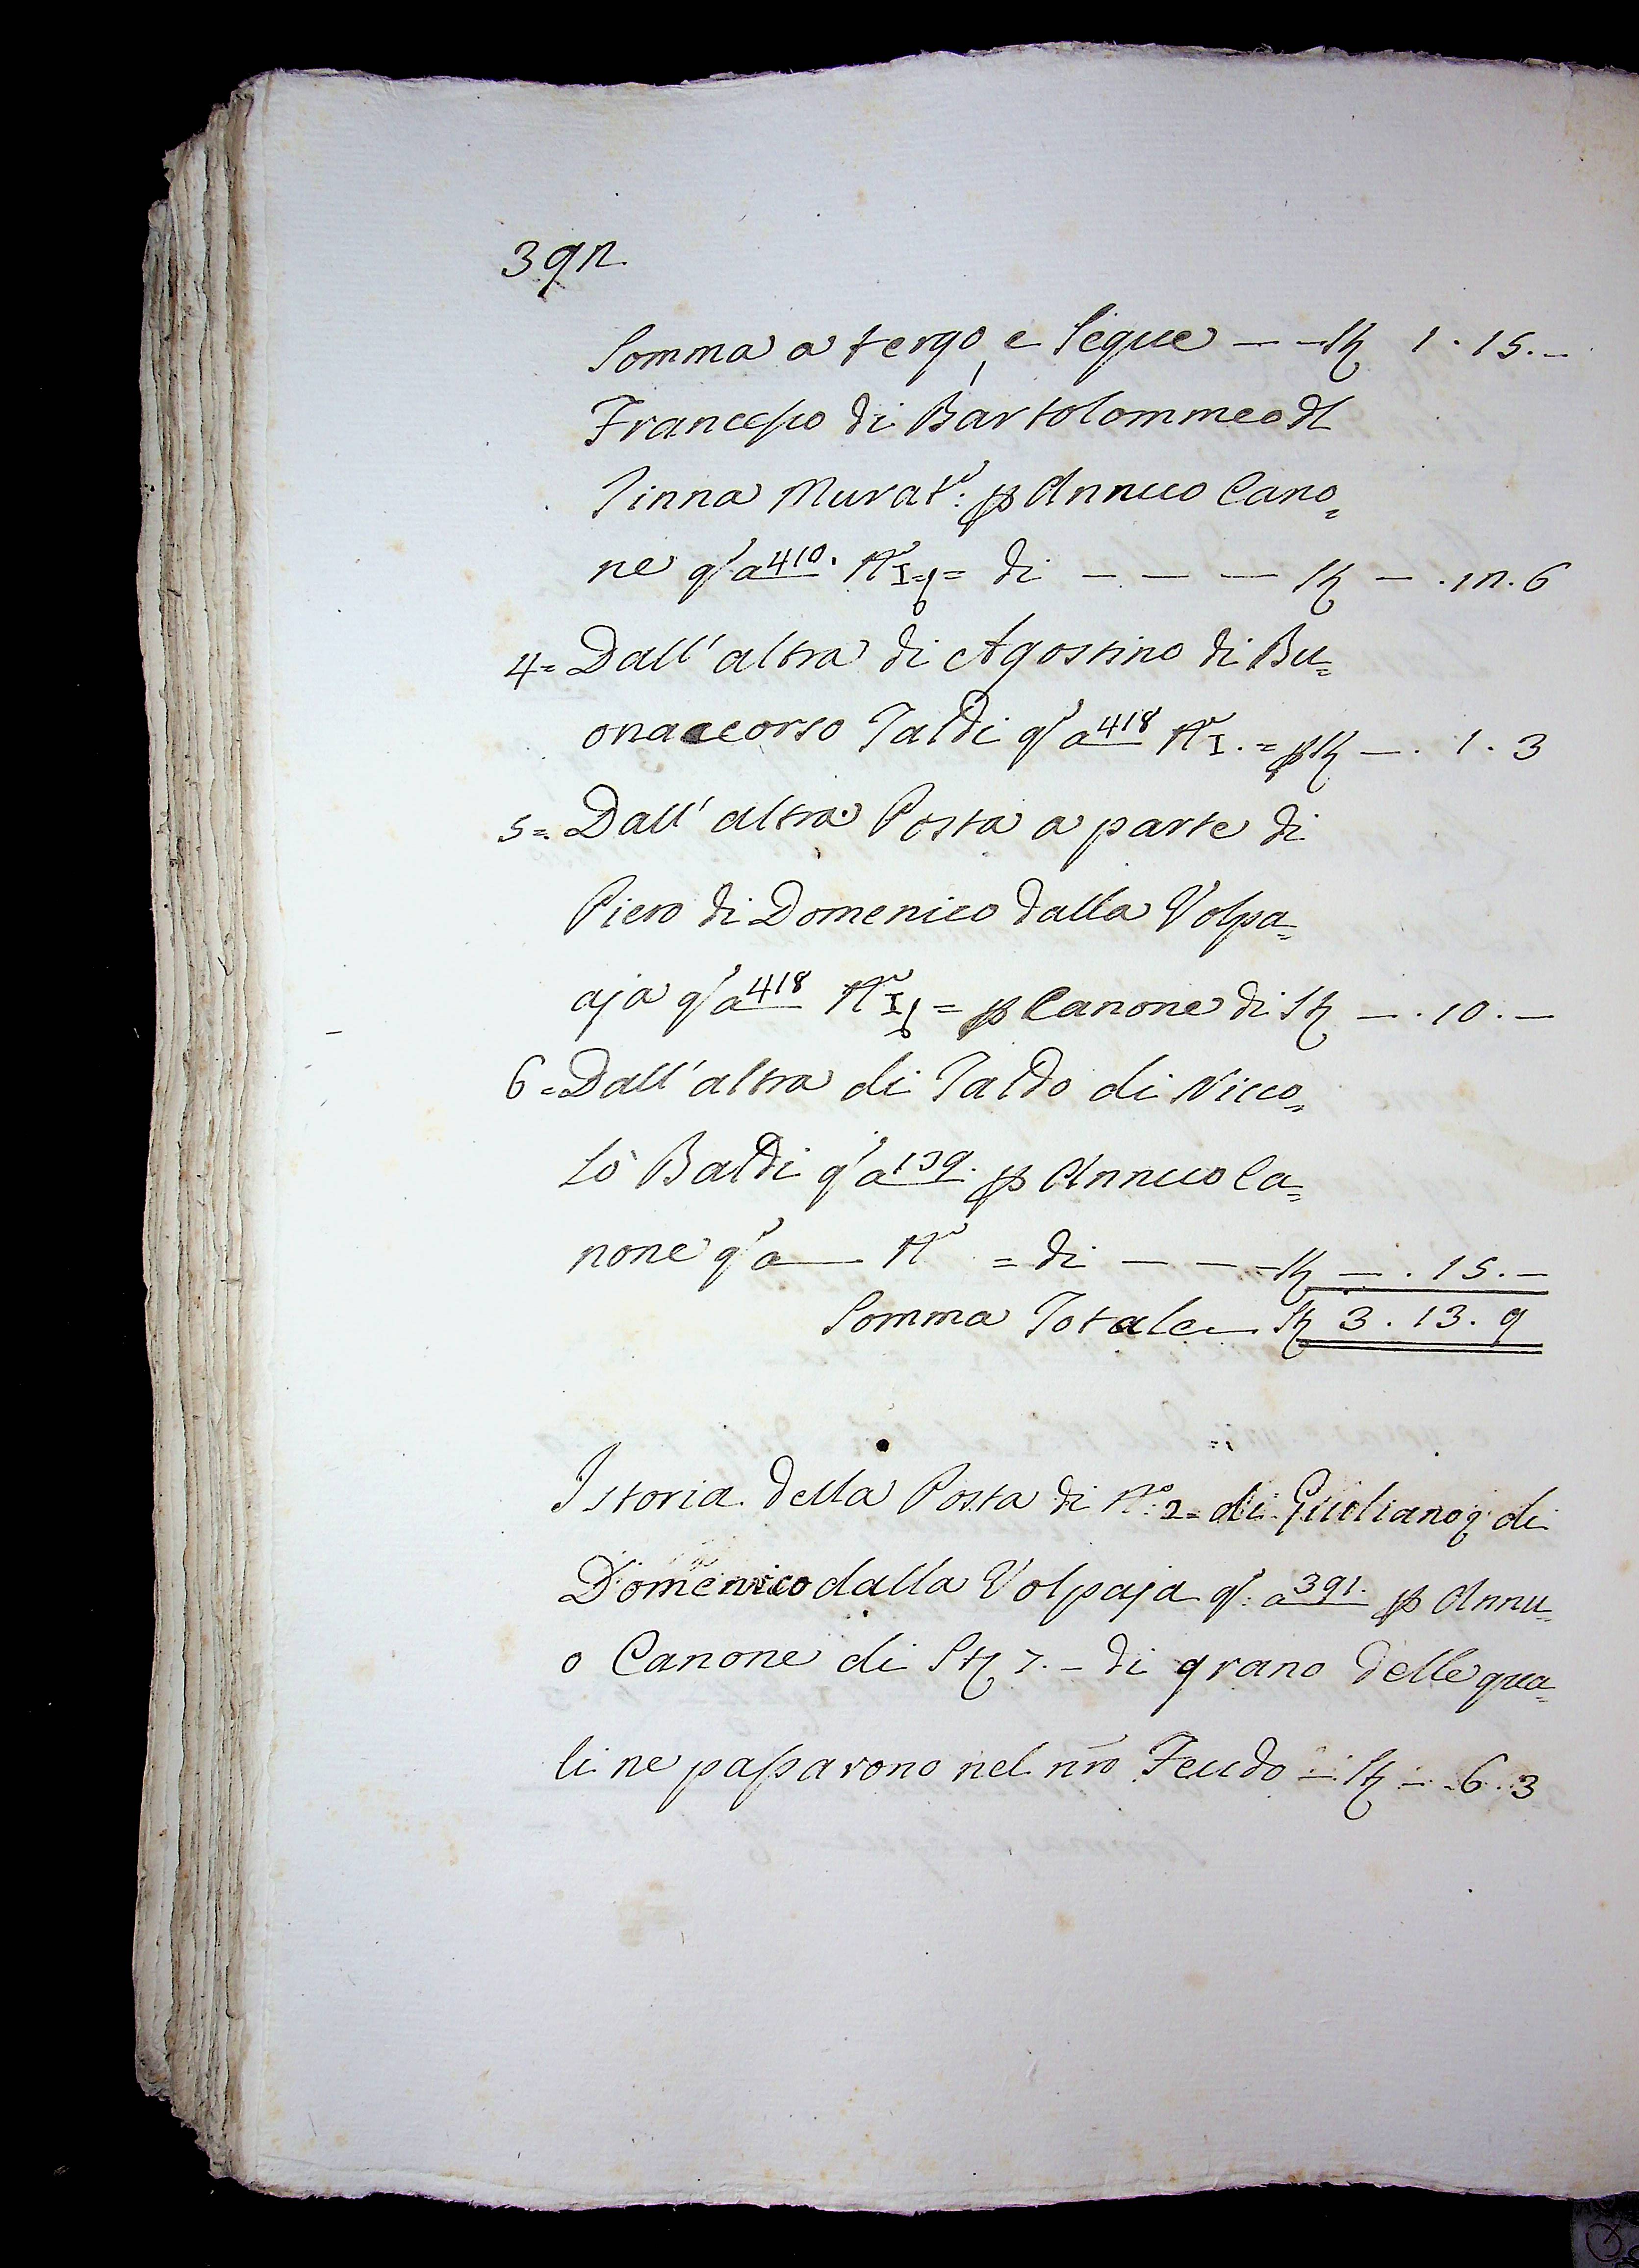 392
Somma a tergo, e Segue — — St 1 . 15. —
Francesco di Bartolommeo dl
Tinna Murat.e: p Annuo Cano=
ne q.o a 410. N.o I = di — — — St — . 12. 6
4= Dall'altra di Agostino di Bu=
onaccorso Taldi q.o a 418 N.o I. = p St — . 1 . 3
5= Dall'altra Posta a parte di
Piero di Domenico dalla Volpa=
aja q.o a 418 N.o I = p Canone di St — . 10 . —
6= Dall'altra di Taldo di Nicco=
lò Baldi q.o a 139. p Annuo Ca=
none q.o a — N.o = di — — — St — . 15. —
Somma Totale — St 3 . 13 . 9
Istoria della Posta di N.o: 2= di Giuliano, di
Domenico dalla Volpaja q.o: a 391. p Annu=
o Canone di St 7. — di grano delle qua=
li ne passarono nel nro Feudo — St — . 6 . 3